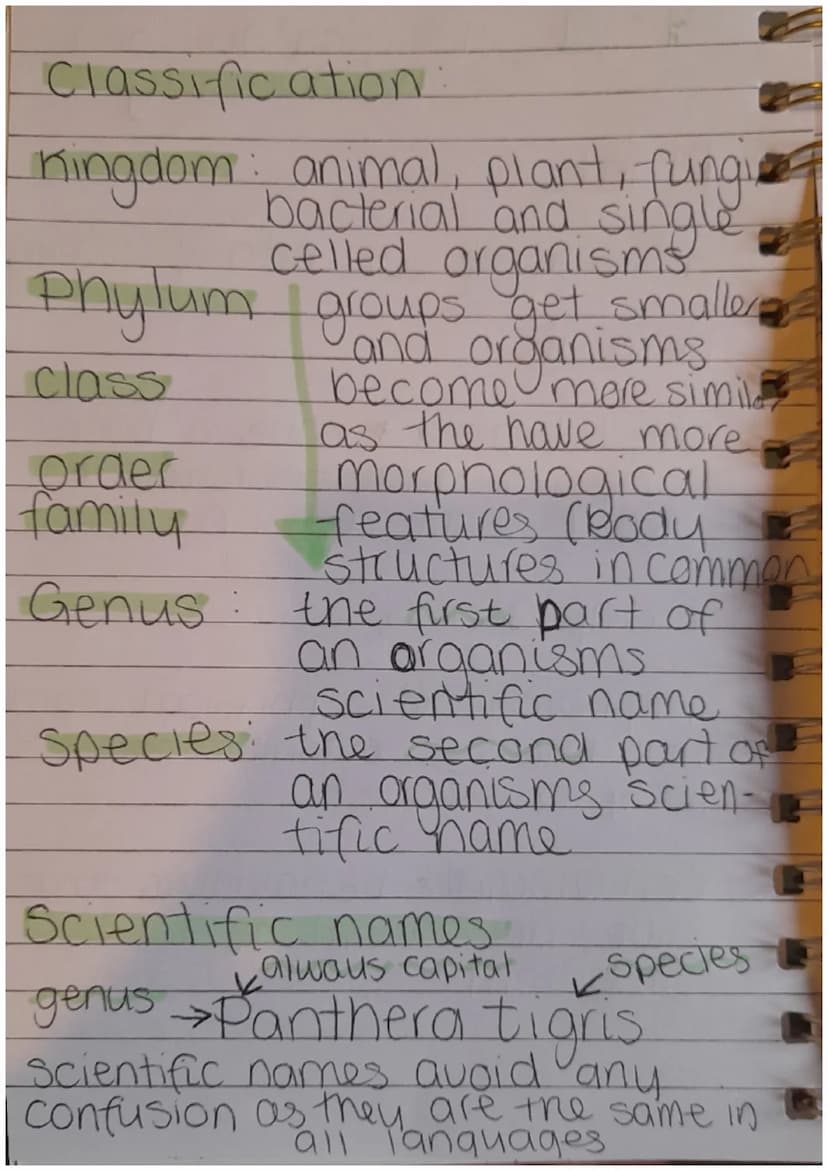 Classification:
Kingdom: animal, plant, fungi
bacterial and single
celled organisms
Phylum groups get smaller
and organisms
class become more similar
as the have more
order morphological
family features (body
structures in common
Genus: the first part of
an organisms
scientific name
Species: the second part of
an organisms scien-
tific name
Scientific names
always capital species
genus →Panthera tigris
scientific names avoid any
confusion as they are the same in
all languages